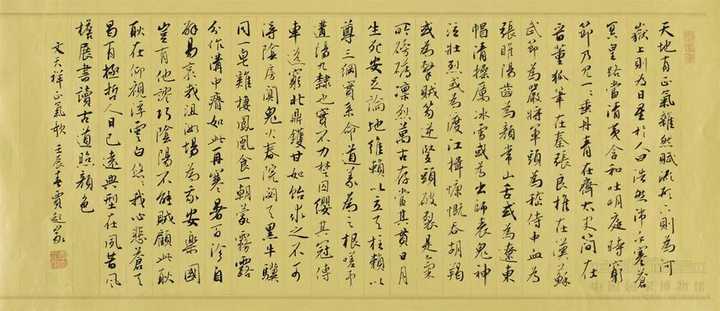 天地有正氣雜然賦流形下則為河
嶽上則為日星於人曰浩然沛乎塞蒼
冥皇路當清夷含和吐明庭時窮
節乃見一一垂丹青在齊太史簡在
晉董狐筆在秦張良椎在漢蘇
武節為嚴將軍頭為嵇侍中血為
張睢陽齒為顏常山舌或為遼東
帽清操厲冰雪或為出師表鬼神
泣壯烈或為渡江楫慷慨吞胡羯
或為擊賊笏逆豎頭破裂是氣
所磅礴凛烈萬古存當其貫日月
生死安足論地維賴以立天柱賴以
尊三綱實系命道義為之根嗟予
遘陽九隸也實不力楚囚纓其冠傳
車送窮北鼎鑊甘如飴求之不可
得陰房闃鬼火春院閟天黑牛驥
同一皂雞棲鳳凰食一朝蒙霧露
分作溝中瘠如此再寒暑百沴自
辟易哀哉沮洳場為我安樂國
豈有他謬巧陰陽不能賊顧此耿
耿在仰視浮雲白悠悠我心悲蒼天
曷有極哲人日已遠典型在夙昔風
檐展書讀古道照顏色
文天祥正氣歌 壬辰春賈起家